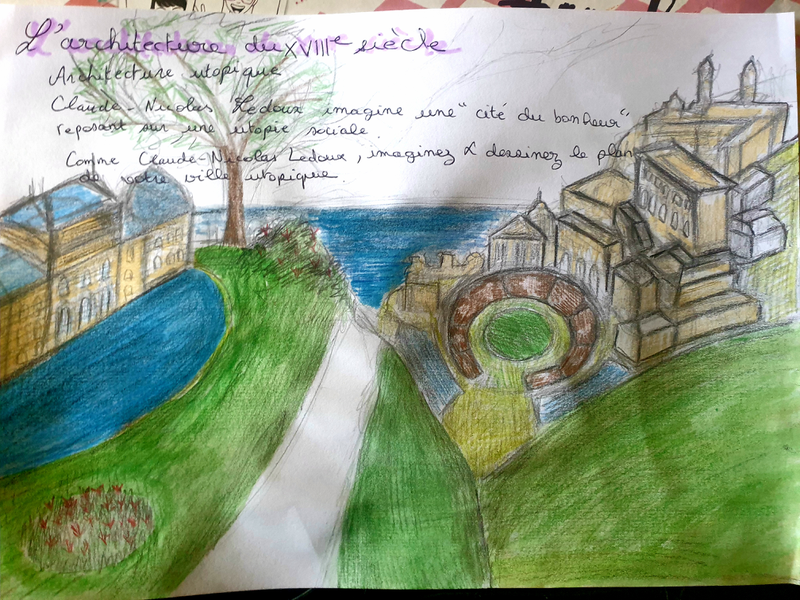 L'architecture du XVIIIe siècle
Architecture utopique
Claude-Nicolas Ledoux imagine une "cité du bonheur"
reposant sur une utopie sociale.
Comme Claude-Nicolas Ledoux, imaginez & dessinez le plan
de votre ville utopique.